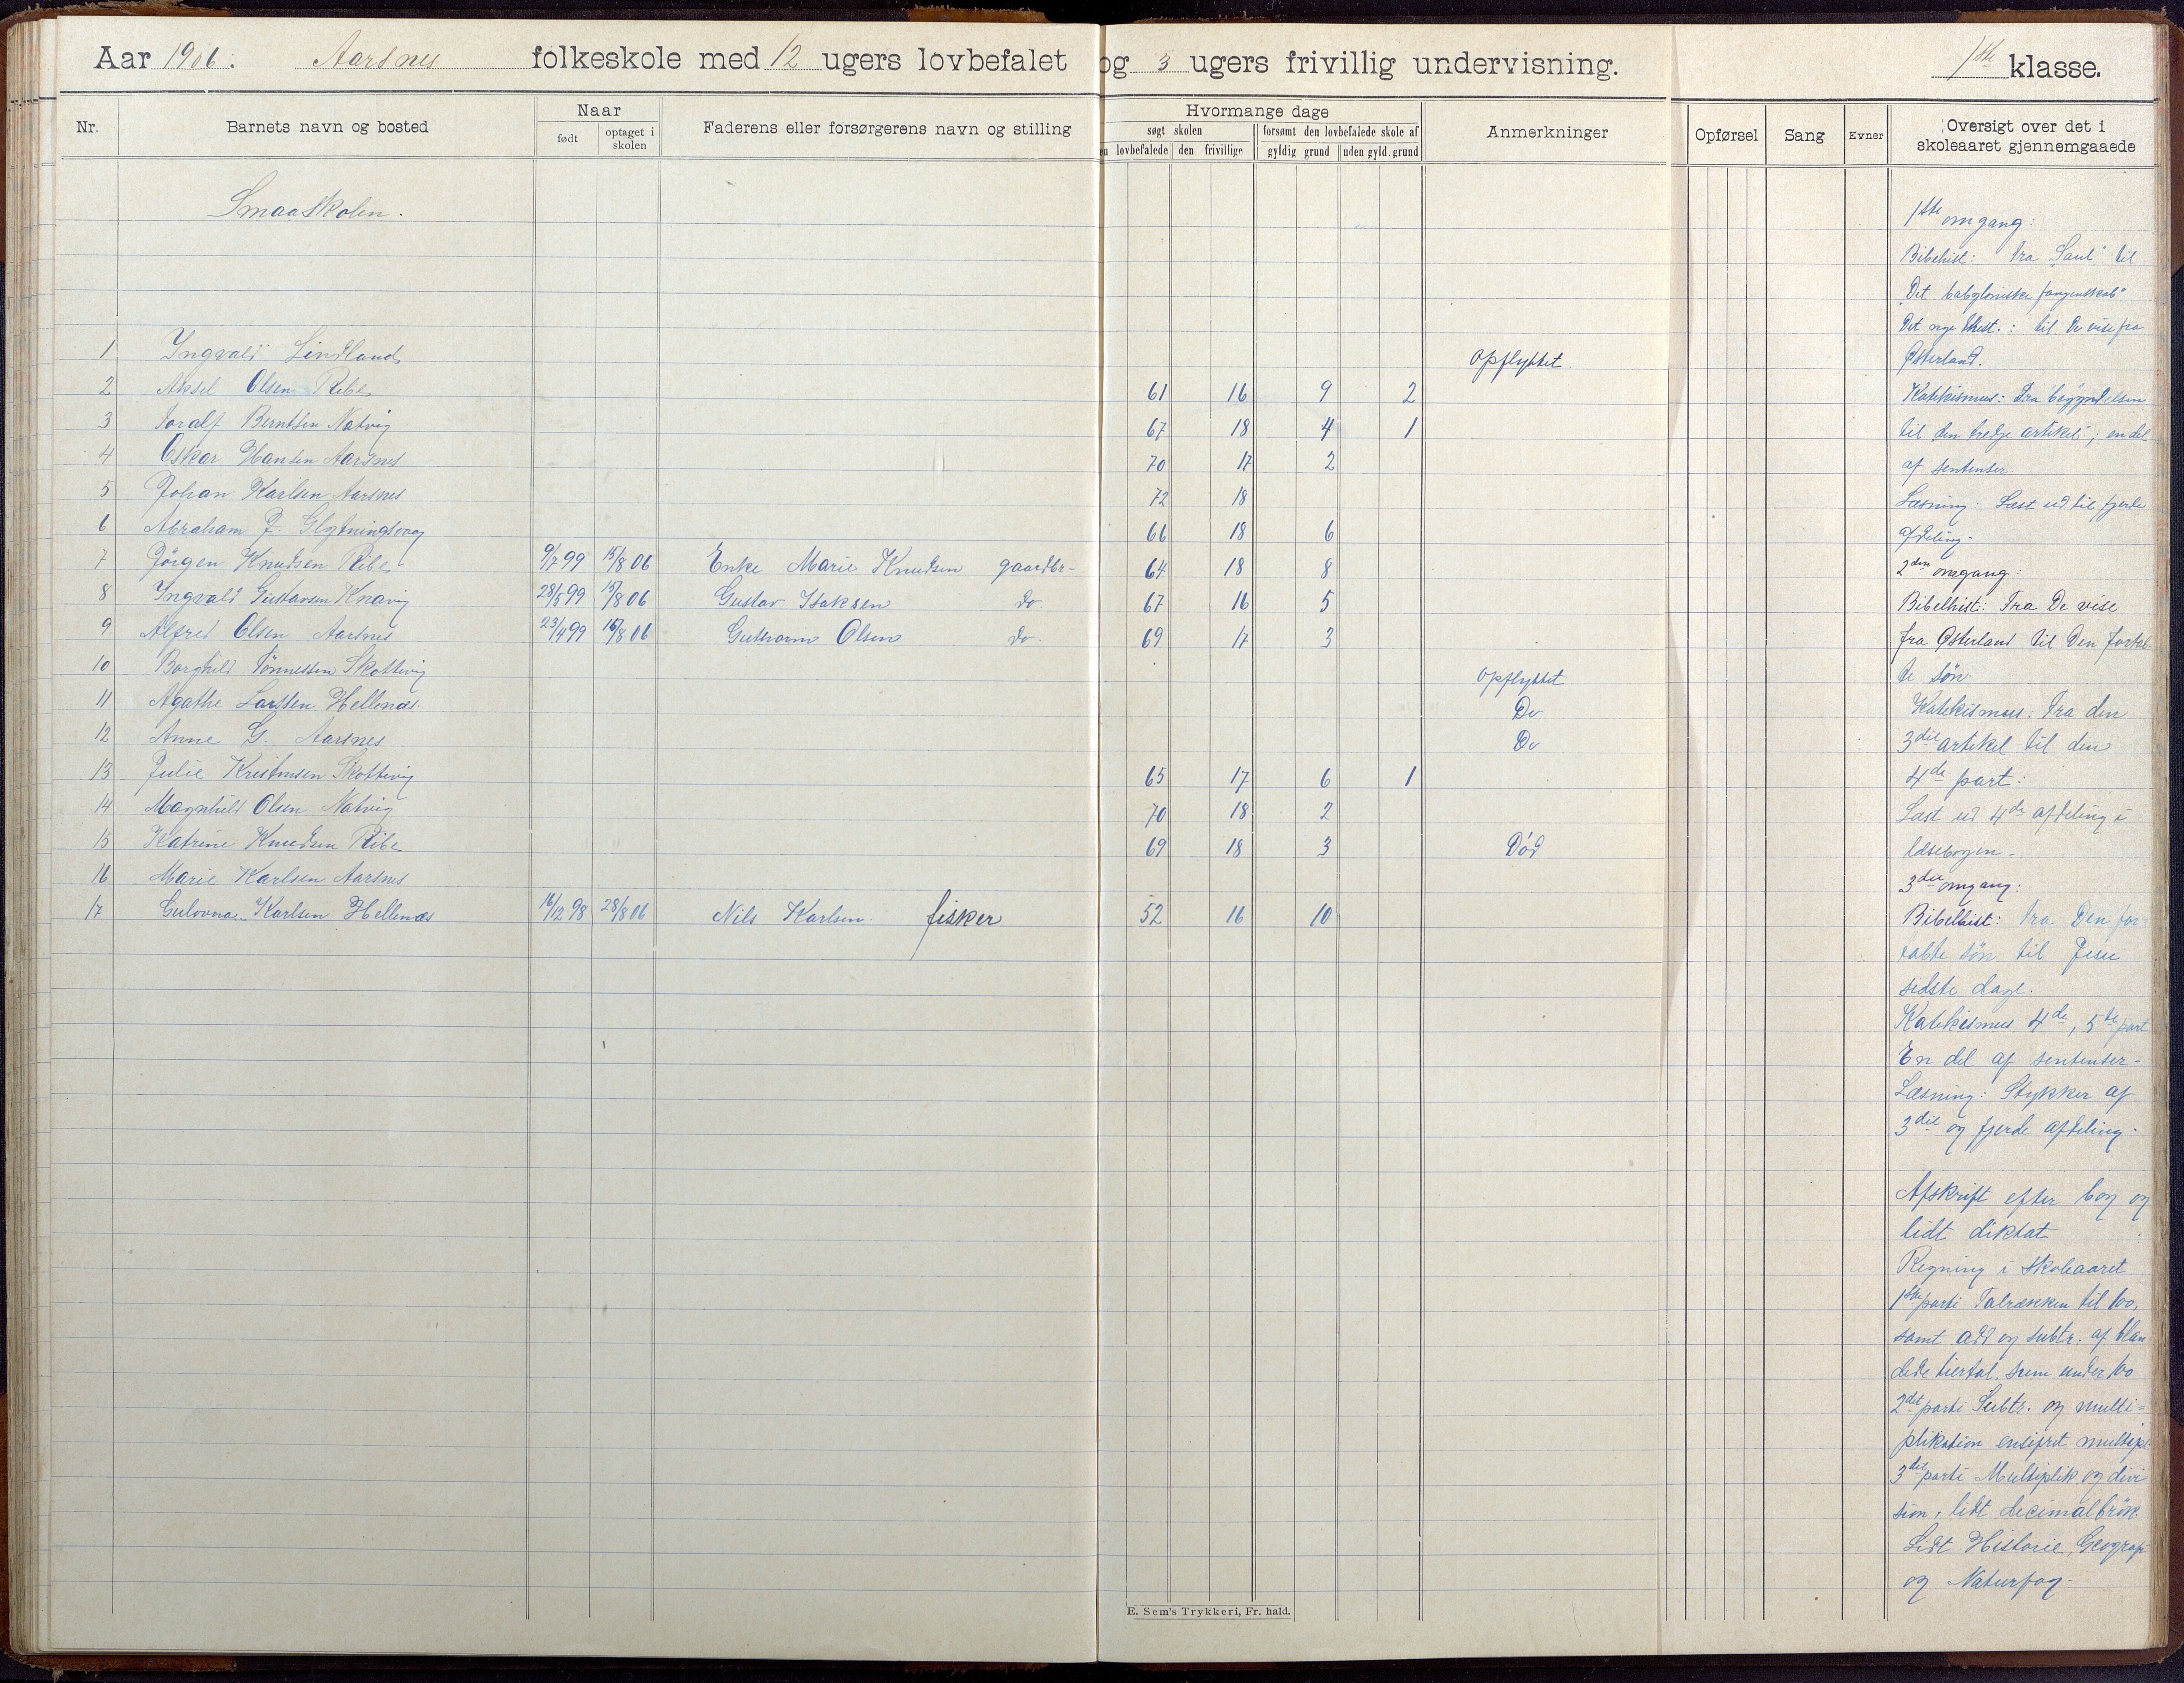 Aar 1906. Aarsnes folkeskole med 12 ugers lovbefalet og 3 ugers frivillig undervisning. 1ste klasse.
Nr. Barnets navn og bosted Naar Faderens eller forsørgerens navn og stilling Hvormange dage Anmerkninger Opførsel Sang Evner Oversigt over det i skoleaaret gjennemgaaede
født optaget i skolen søgt skolen forsømt den lovbefalede skole af
lovbefalede den frivillige gyldig grund uden gyld. grund
Smaaskolen.
1 Yngvald Lindland Opflyttet.
2 Aksel Olsen Ribe 61 16 9 2
3 Toralf Berntsen Natvig 67 18 4 1
4 Oskar Hansen Aarsnes 70 17 2
5 Johan Karlsen Aarsnes 72 18
6 Abraham J. 66 18 6
7 Jörgen Knudsen Ribe 9/7 99 15/8 06 Enke Marie Knudsen gaardbr- 64 18 8
8 Yngvald Gustavsen Knavig 28/5 99 15/8 06 Gustav Isaksen do. 67 16 5
9 Alfred Olsen Aarsnes 23/4 99 16/8 06 Guttorm Olsen do 69 17 3
10 Borghild Tönnessen Skottevig Opflyttet
11 Agathe Larssen Hellenæs. Do
12 Anne G. Aarsnes Do
13 Julie Kristensen Skottevig 65 17 6 1
14 Magnhild Olsen Natvig 70 18 2
15 Katrine Knudsen Ribe 69 18 3 Död
16 Marie Karlsen Aarsnes
17 Gulovna Karlsen Hellenæs 16/12 98 28/8 06 Nils Karlsen. fisker 52 16 10
1ste omgang:
Bibelhist: Fra "Saul" til
"Det babyloniske fangenskab"
Det nye Test.: til De vise fra
Østerland.
Katekismus: Fra begyndelsen
til den tredje artikel; en del
af sentenser
Læsning: Læst ud til fjerde
afdeling.
2den omgang:
Bibelhist: Fra De vise
fra Østerland til Den fortab-
te sön.
Katekismus: Fra den
3die artikel til den
4de part:
Læst ud 4de afdeling i
læsebogen-
3die omgang:
Bibelhist: Fra Den for-
tabte sön til Jesu
sidste dage.
Katekismus 4de, 5te part
En del af sentenser-
Læsning: Stykker af
3die og fjerde afdeling.
Afskrift efter bog og
lidt diktat
Regning i skoleaaret
1ste parti Talrækken til 100,
samt add og subtr. af blan
dede tiertal, sum under 100
2det parti Subtr. og multi=
plikation ensifret multipl
3die parti Multiplik. og divi
sion, lidt decimalbrök.
Lidt Historie, Geografi
og Naturfag.
E. Sem's Trykkeri, Fr. hald.